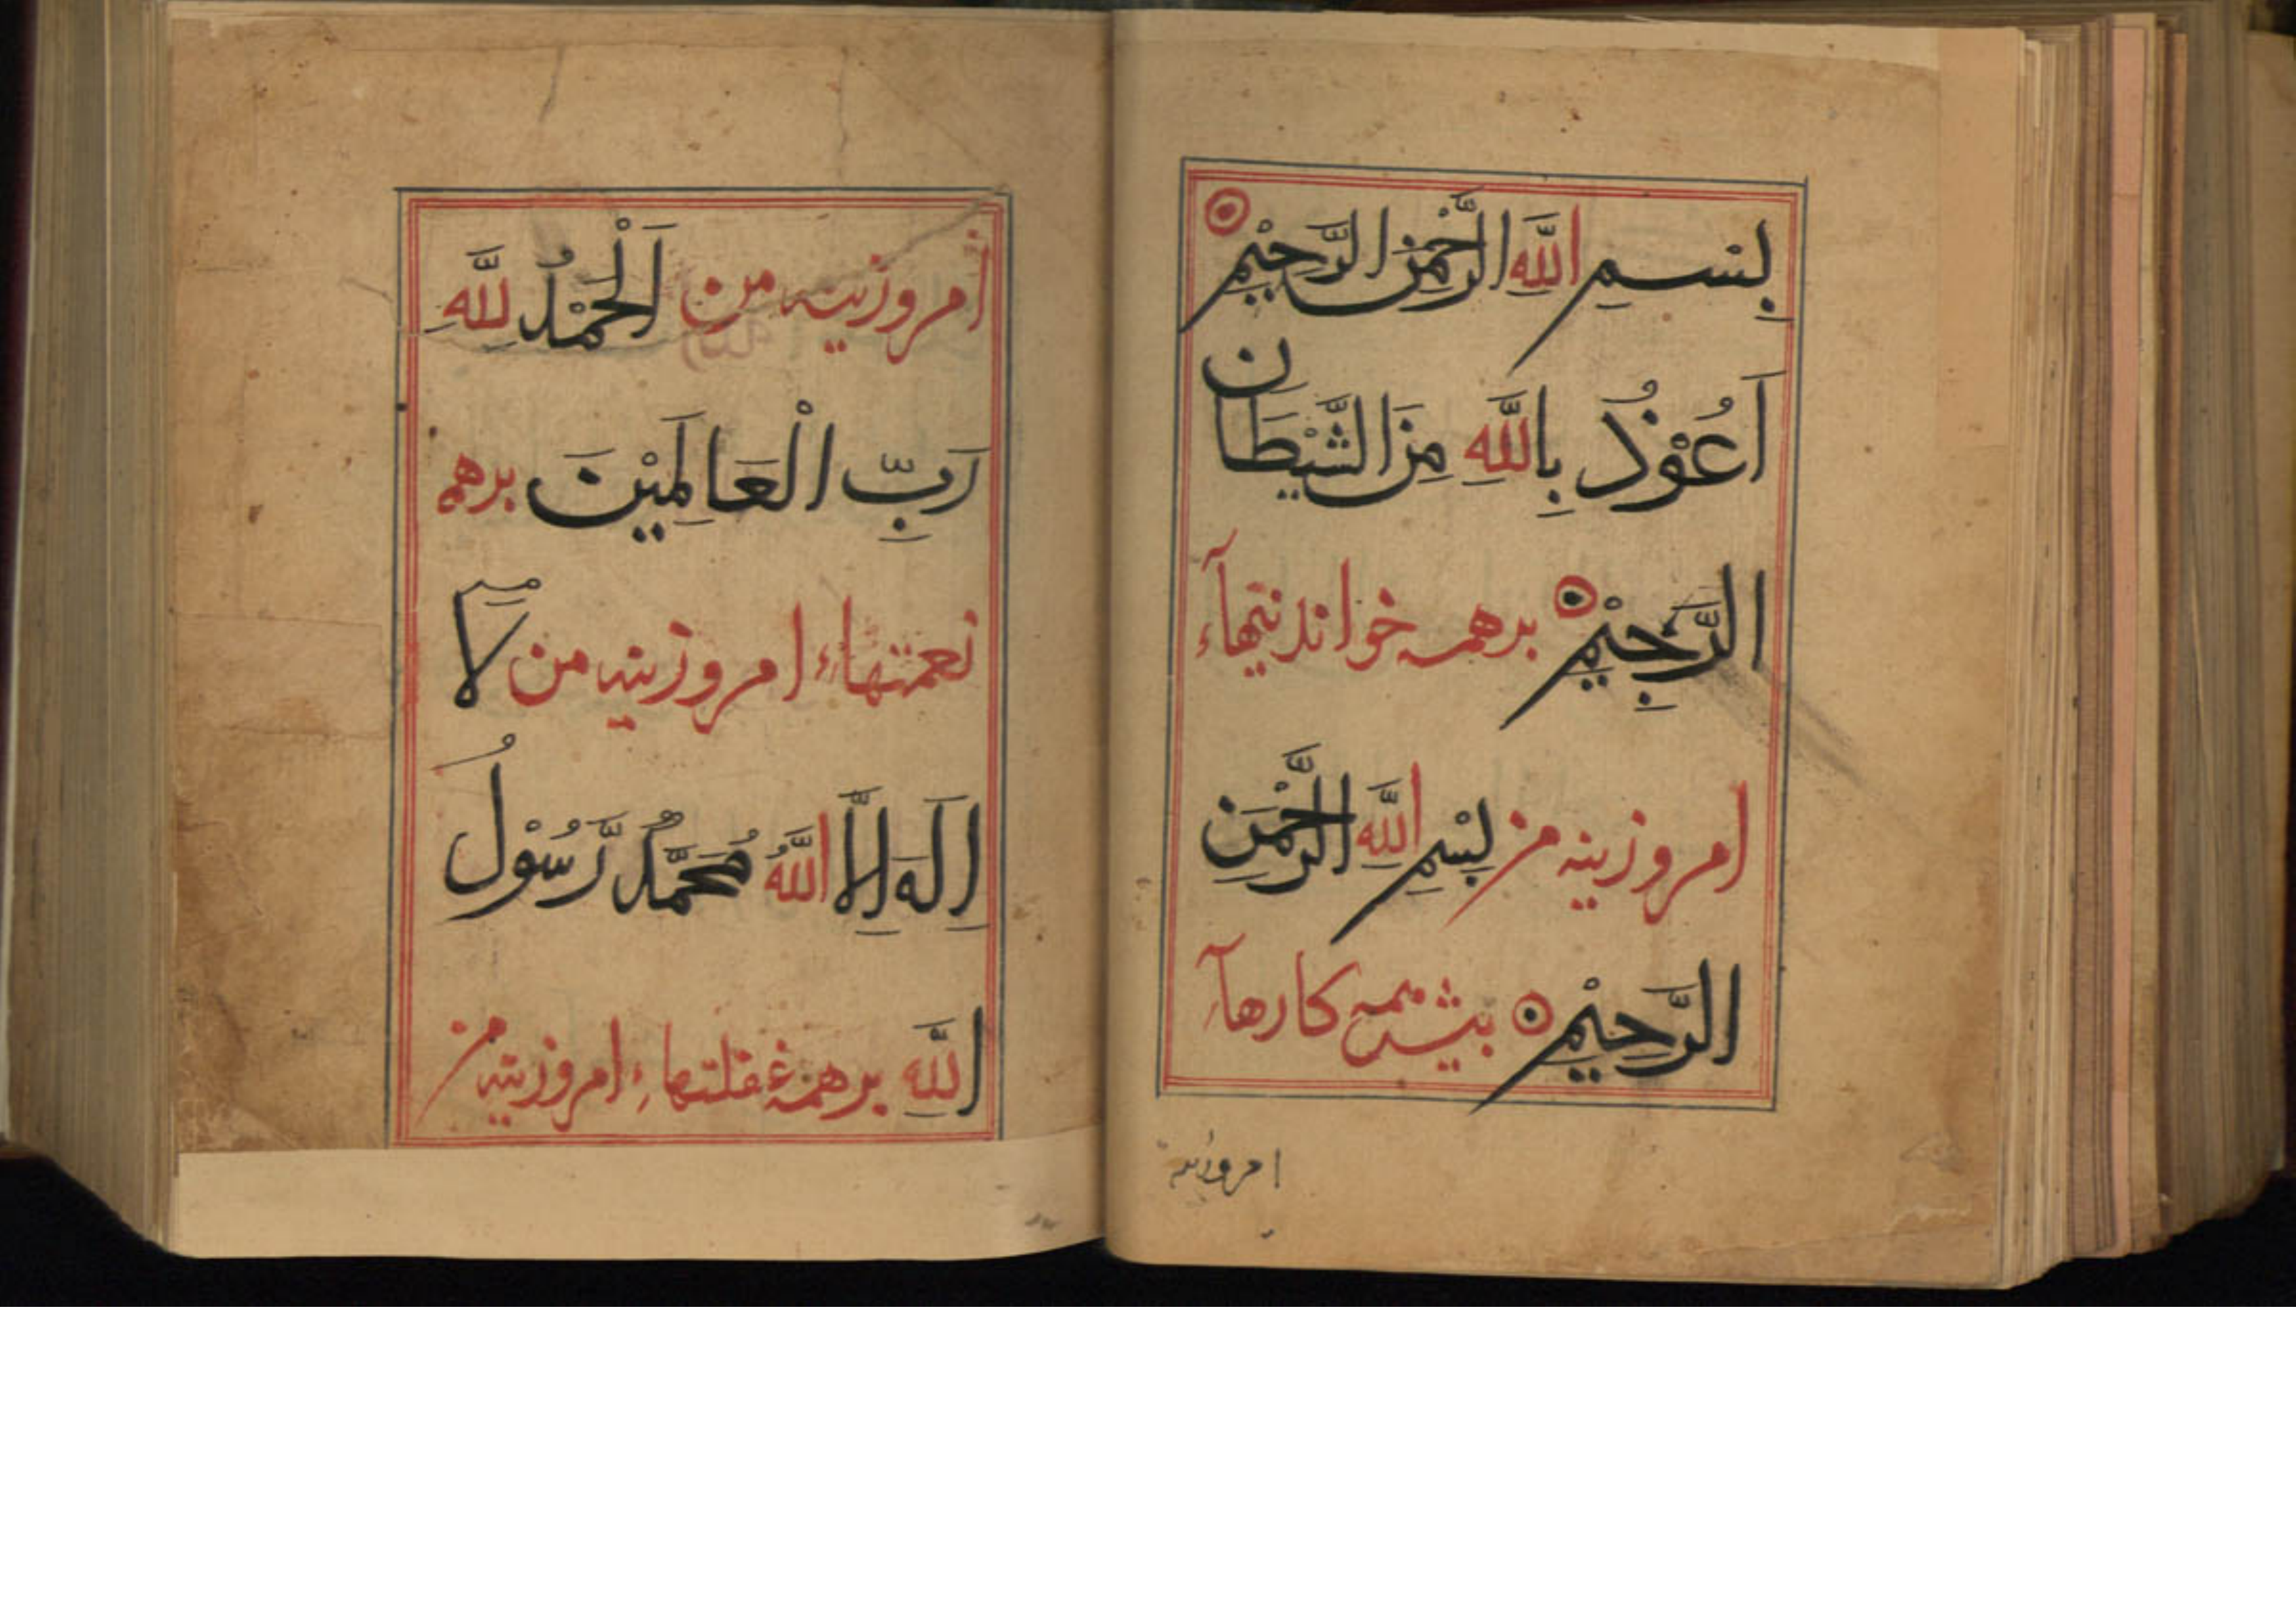 بِسْمِ اللَّهِ الرَّحْمٰنِ الرَّحِيْمِ
اَعُوْذُ بِاللَّهِ مِنَ الشَّيْطَان
الرَّجِيْمِ برهمه خواندنیهآء
امروزینه من بِسْمِ اللَّهِ الرَّحْمٰنِ
الرَّحِيْمِ بیش همه کارهآء
امروزینه
امروزینه من اَلْحَمْدُ لِلَّهِ
رَبِّ الْعَالَمِيْنَ برهمه
نعمتهاء امروزینه من لَا
اِلَهَ اِلَّا اللَّهُ مُحَمَّدٌ رَّسُوْلُ
اللَّهِ برهمه غفلتهاء امروزینه من